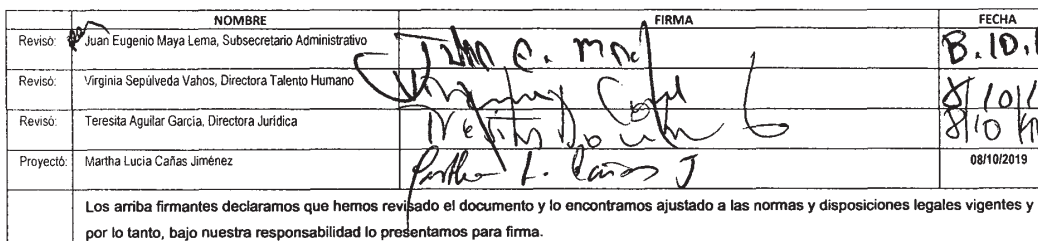 NOMBRE FIRMA FECHA
Revisó: Juan Eugenio Maya Lema, Subsecretario Administrativo
Revisó: Virginia Sepúlveda Vahos, Directora Talento Humano
Revisó: Teresita Aguilar García, Directora Jurídica
Proyectó: Martha Lucia Cañas Jiménez Martha L. Cañas J 08/10/2019
Los arriba firmantes declaramos que hemos revisado el documento y lo encontramos ajustado a las normas y disposiciones legales vigentes y
por lo tanto, bajo nuestra responsabilidad lo presentamos para firma.